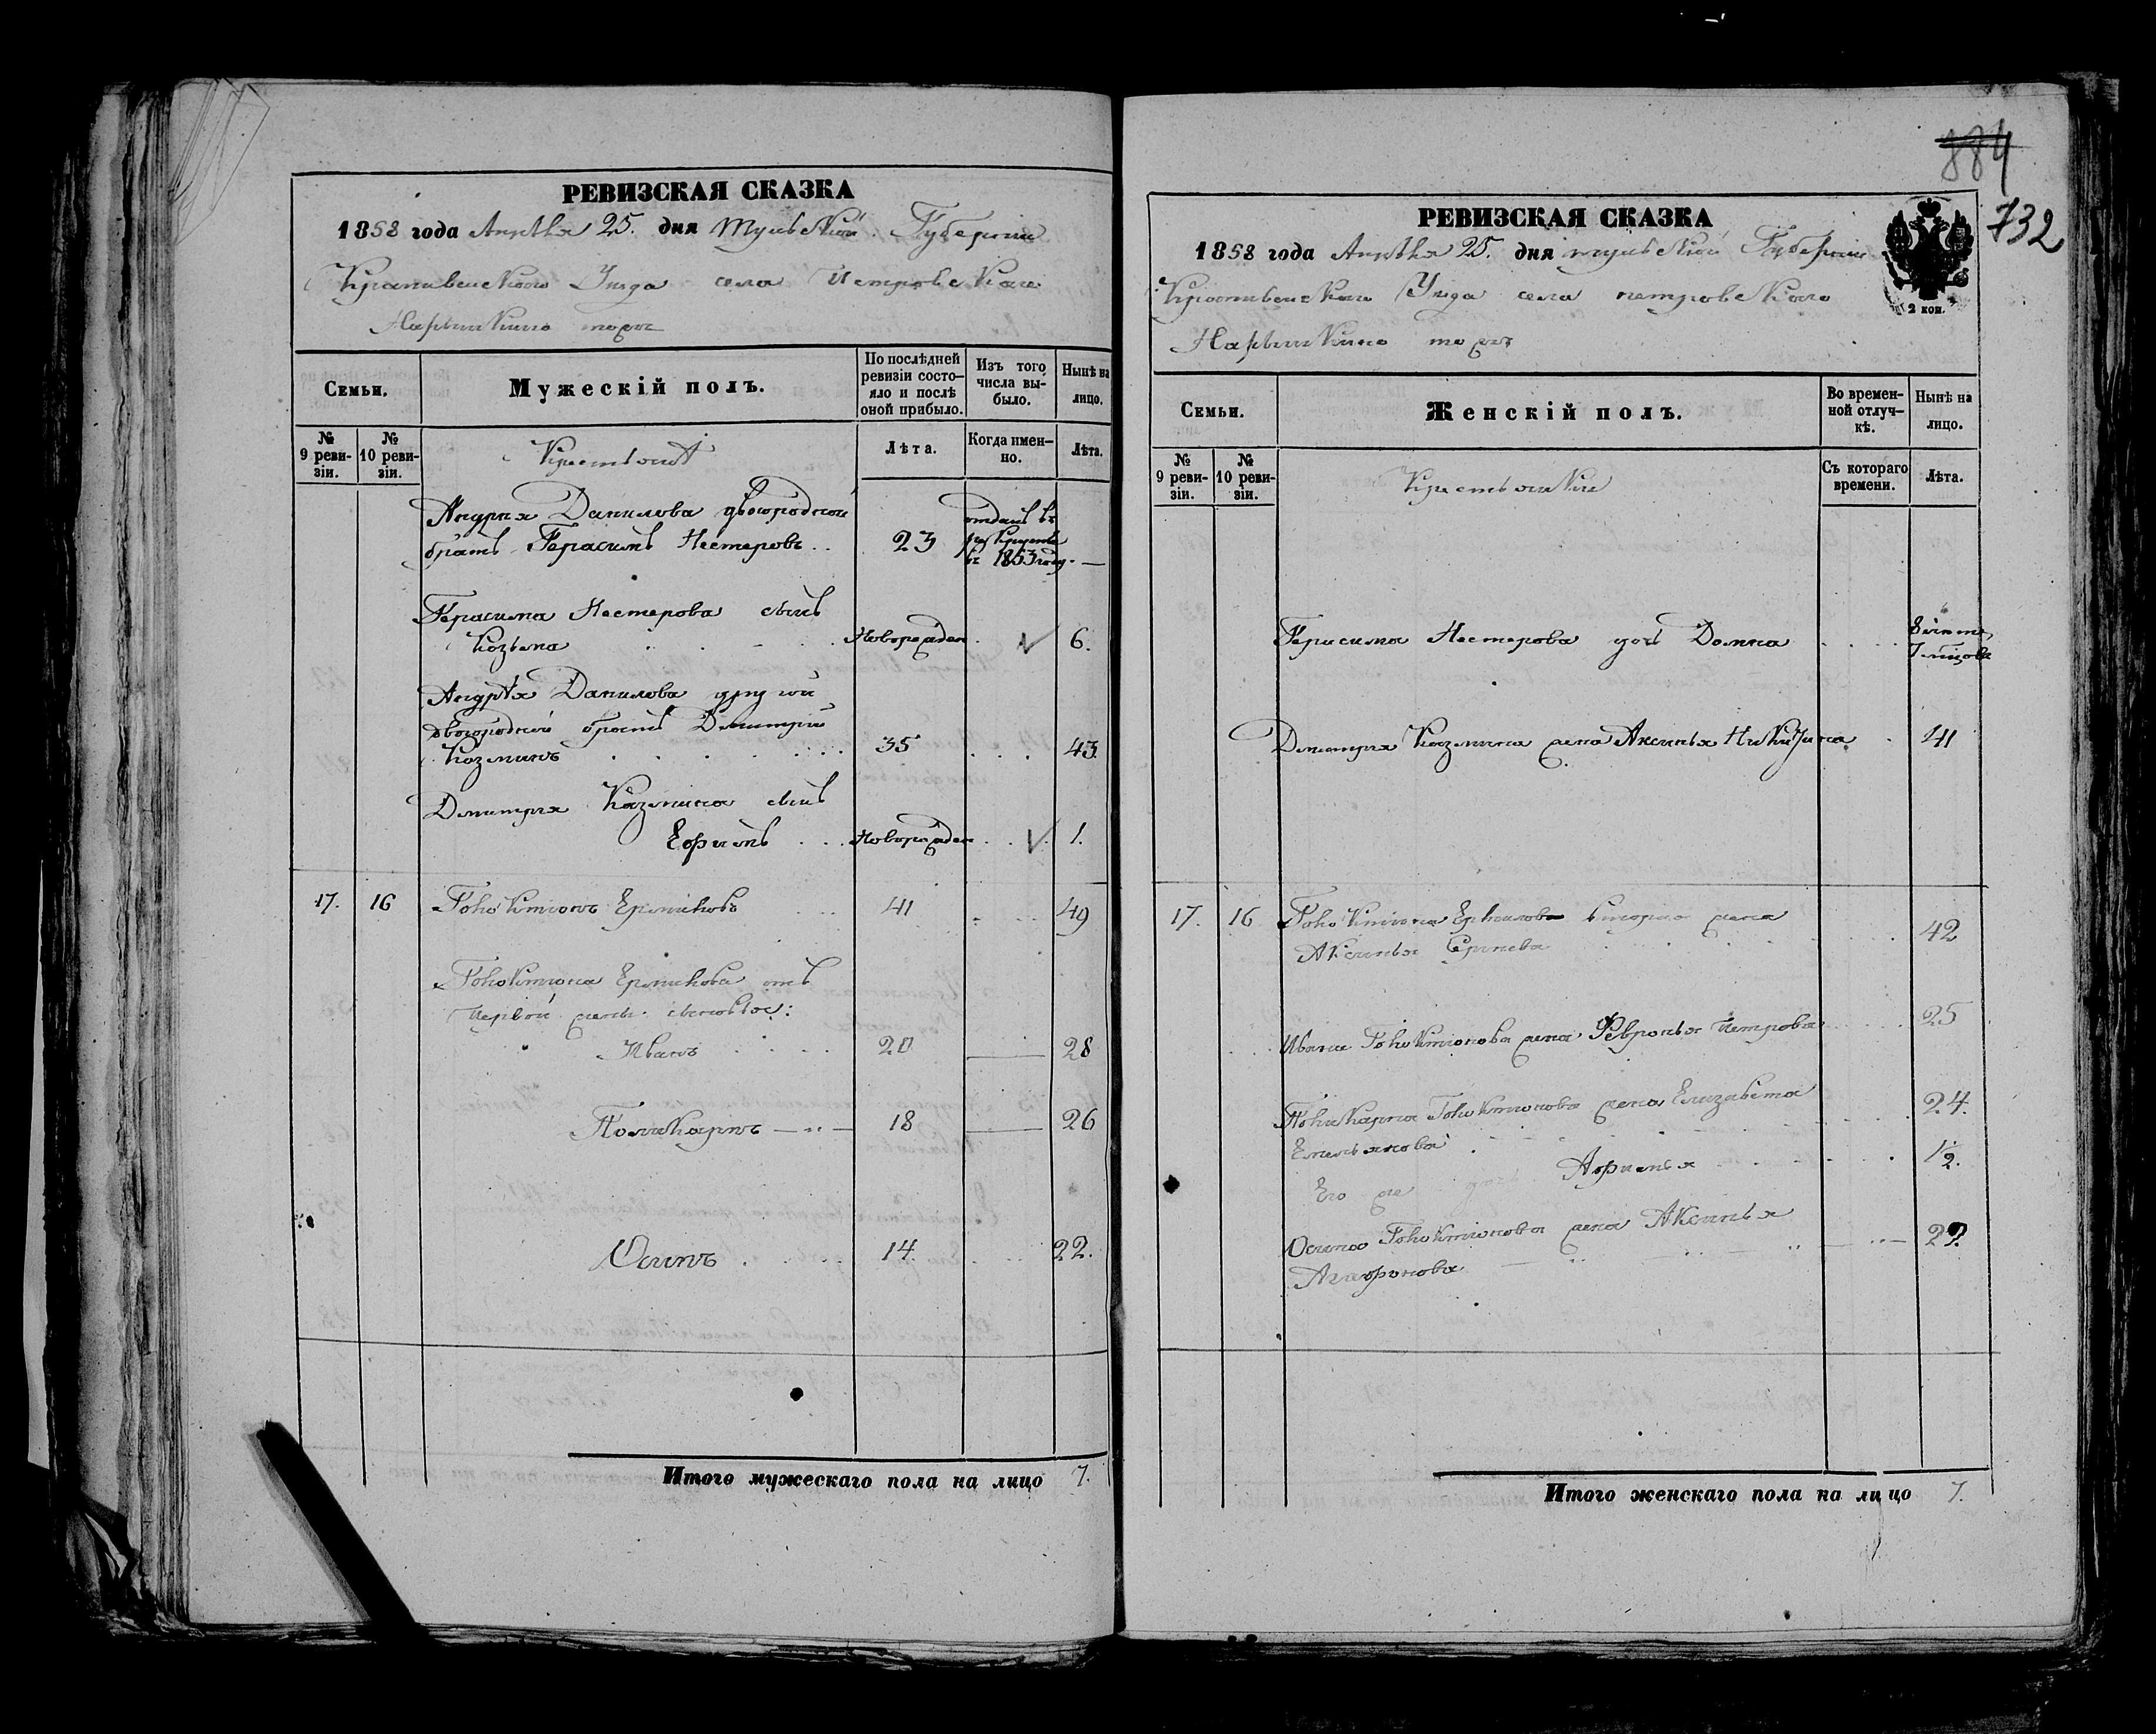 РЕВИЗСКАЯ СКАЗКА
1858 года Апрѣля 25. дня Тульской Губерніи
Крапивенского Уезда села Петровскаго
Нарышкино тожъ
Семьи.
Мужескій полъ.
По послѣдней ревизіи состо-
яло и послѣ оной прибыло.
Изъ того числа вы-
было.
Нынѣ на лицо.
№ 9 реви-
зіи.
№ 10 реви-
зіи.
Крестьянѣ
Лѣта.
Когда имен-
но.
Лѣта.
Андрея Данилова двоюродной
братъ Герасимъ Нестеровъ 23 отданъ въ рекруты въ 1853 году. —
Герасима Нестерова сынъ
Козьма Новорожден 6.
Андрѣя Данилова другой
двоюродной братъ Дмитрій
Козминъ 35 43
Дмитрия Казмина сынъ
Ефимъ Новорожден 1.
17. 16 Ермиловъ 41 49
Ермилова отъ
первой жены сыновья:
Иванъ 20 28
Поликарпъ 18 26
Осипъ 14. 22.
Итого мужескаго пола на лицо 7.
884
732
РЕВИЗСКАЯ СКАЗКА
1858 года Апрѣля 25. дня Тульской Губерніи
Крапивенскаго Уезда села петровскаго
Нарышкино тожъ
2 коп.
Семьи.
Женскій полъ.
Во времен-
ной отлуч-
кѣ.
Нынѣ на лицо.
№ 9 реви-
зіи.
№ 10 реви-
зіи.
Крестьянки
Съ котораго времени.
Лѣта.
Герасима Нестерова дочь Домна
Дмитрия Казмина жена Аксинья Никитина 41
17. 16 Ермилова вторая жена
Аксинья 42
Ивана жена Февронья Петрова 25
Поликарпа жена Елизавета 24.
Емельянова
Его же дочь Афимья 1/2.
Осипа жена Аксинья 22.
Агафонова
Итого женскаго пола на лицо 7.